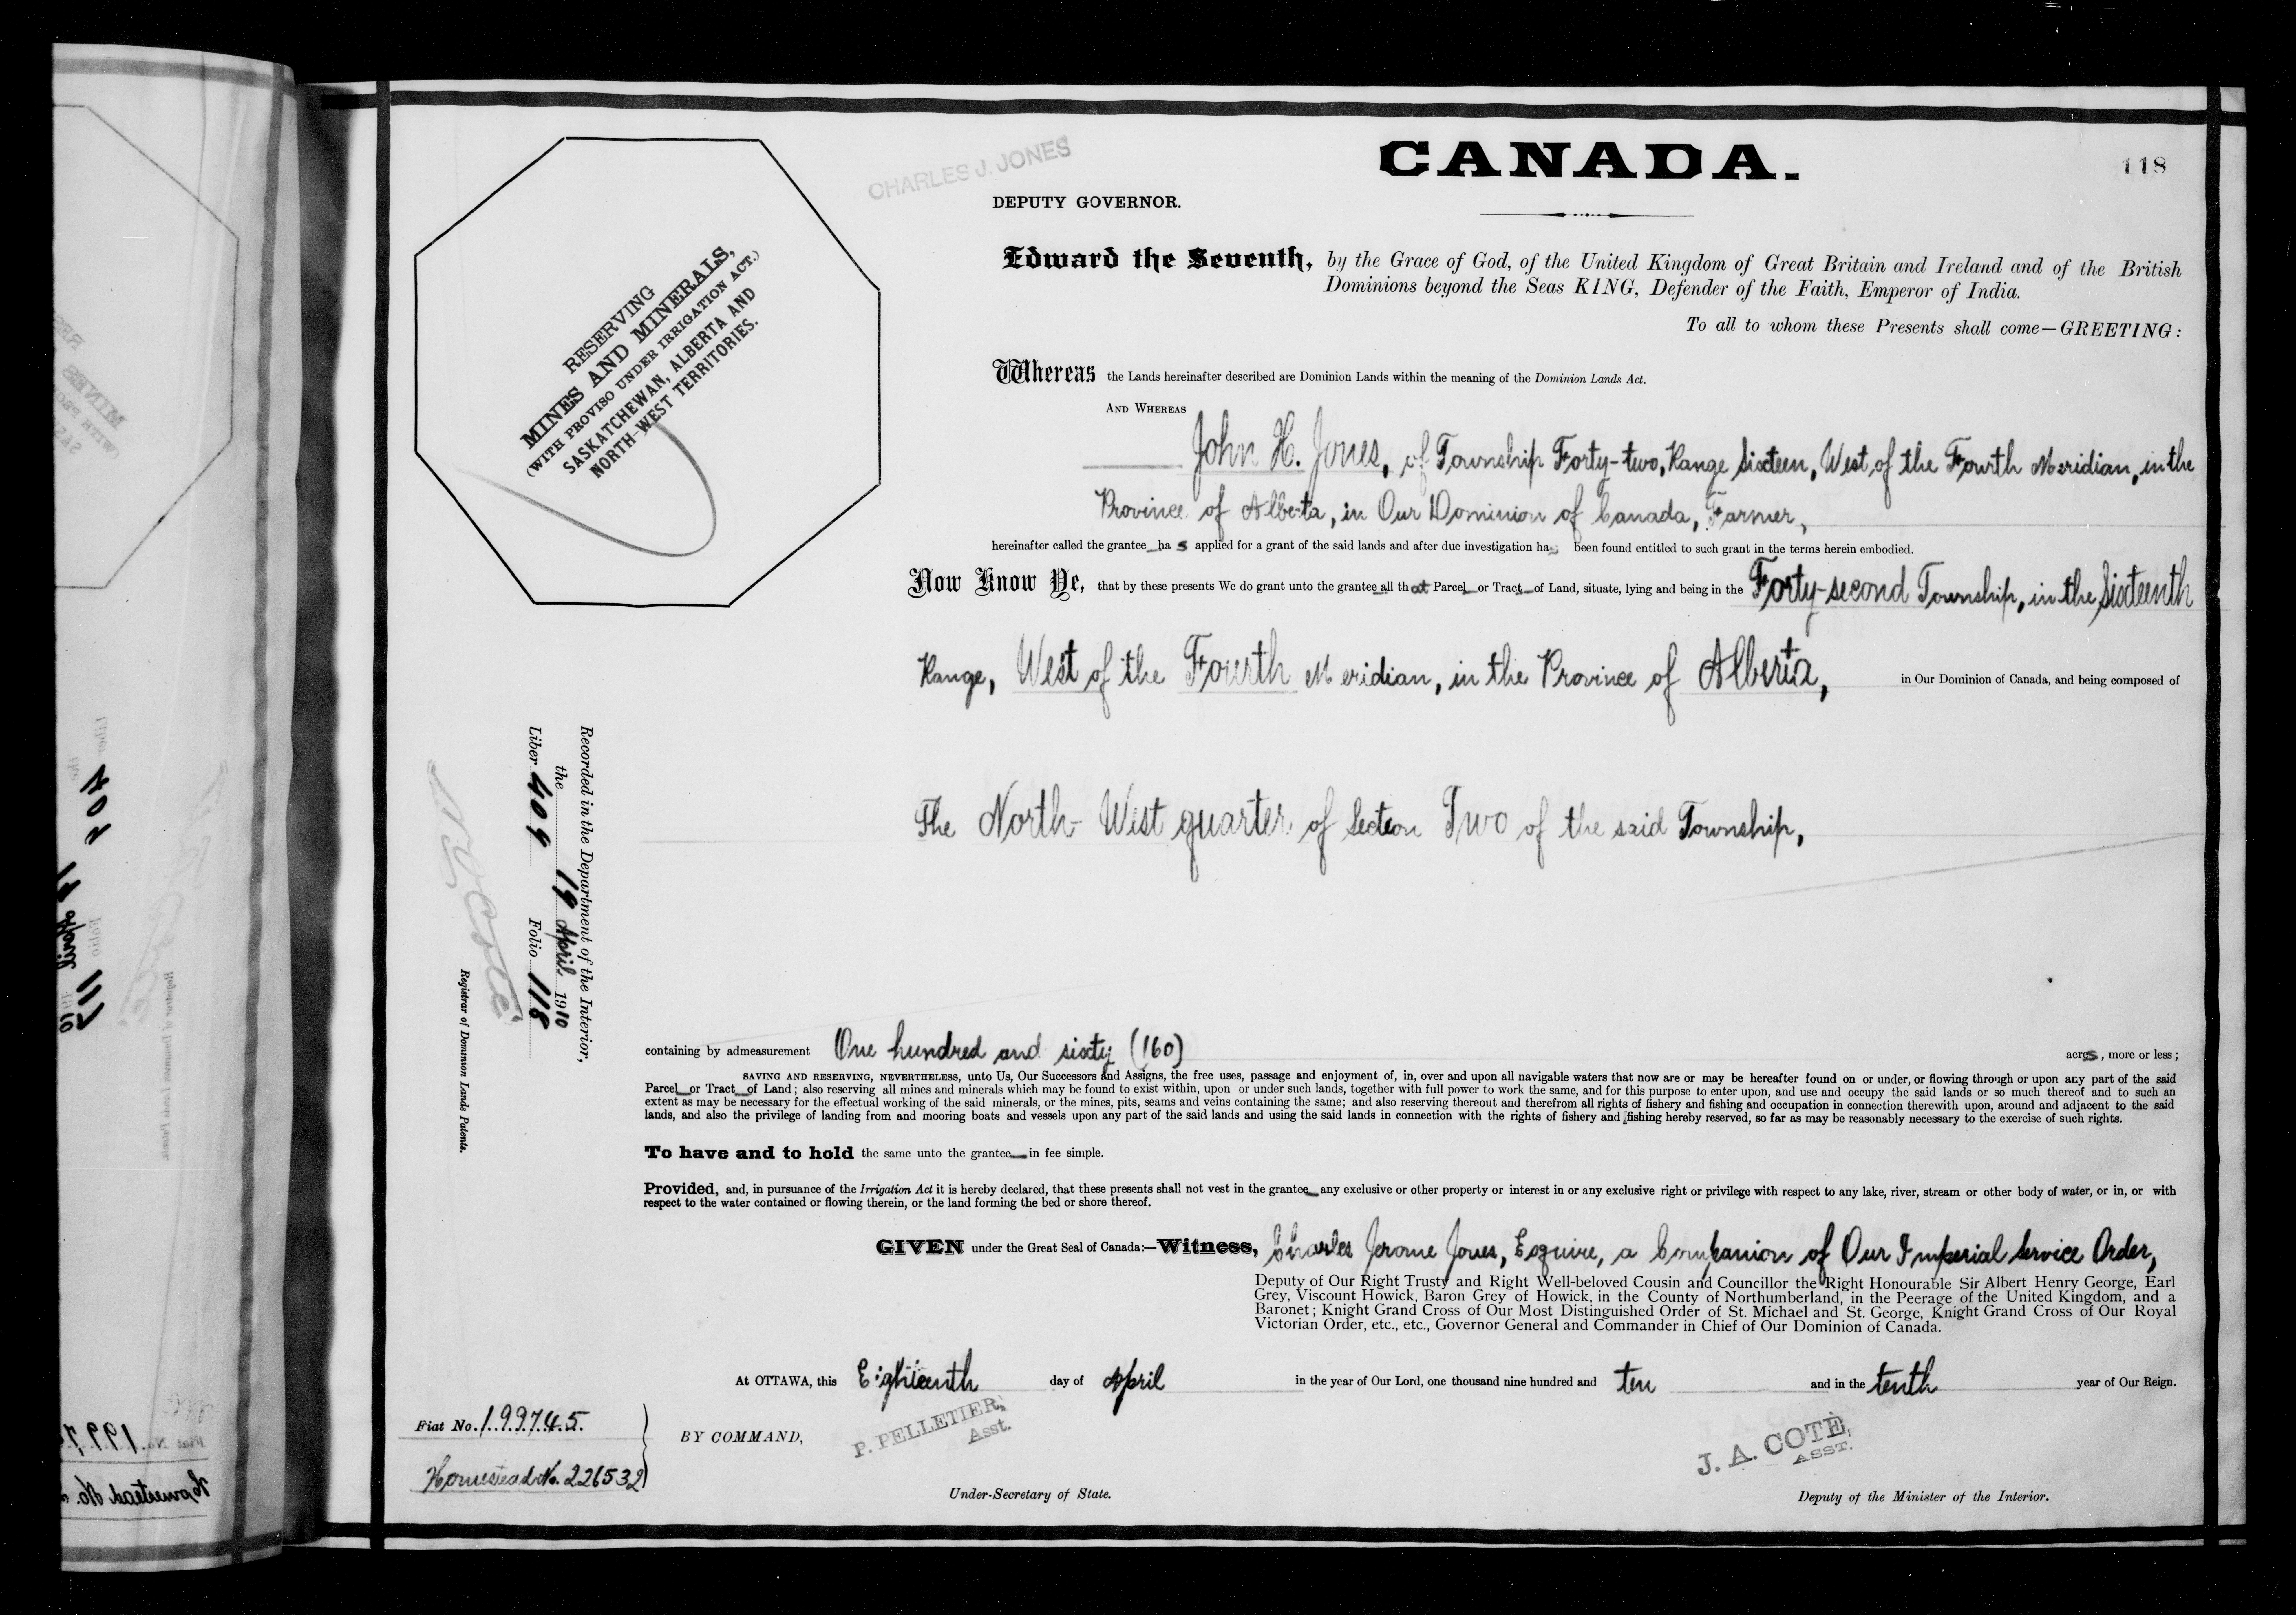 CHARLES J. JONES
CANADA.
118
DEPUTY GOVERNOR.
Edward the Seventh, by the Grace of God, of the United Kingdom of Great Britain and Ireland and of the British
Dominions beyond the Seas KING, Defender of the Faith, Emperor of India.
To all to whom these Presents shall come—GREETING:
RESERVING
MINES AND MINERALS,
(WITH PROVISO UNDER IRRIGATION ACT.)
SASKATCHEWAN, ALBERTA AND
NORTH-WEST TERRITORIES.
Whereas the Lands hereinafter described are Dominion Lands within the meaning of the Dominion Lands Act.
AND WHEREAS
John H. Jones, of Township Forty-two, Range Sixteen, West of the Fourth Meridian, in the
Province of Alberta, in Our Dominion of Canada, Farmer,
hereinafter called the grantee has applied for a grant of the said lands and after due investigation has been found entitled to such grant in the terms herein embodied.
Now Know Ye, that by these presents We do grant unto the grantee all that Parcel or Tract of Land, situate, lying and being in the Forty-second Township, in the Sixteenth
Range, West of the Fourth Meridian, in the Province of Alberta, in Our Dominion of Canada, and being composed of
The North-West quarter of Section Two of the said Township,
Recorded in the Department of the Interior,
the 19 April 1910
Liber 409 Folio 118
N O Coté
Registrar of Dominion Lands Patents.
containing by admeasurement One hundred and sixty (160) acres, more or less;
SAVING AND RESERVING, NEVERTHELESS, unto Us, Our Successors and Assigns, the free uses, passage and enjoyment of, in, over and upon all navigable waters that now are or may be hereafter found on or under, or flowing through or upon any part of the said
Parcel or Tract of Land; also reserving all mines and minerals which may be found to exist within, upon or under such lands, together with full power to work the same, and for this purpose to enter upon, and use and occupy the said lands or so much thereof and to such an
extent as may be necessary for the effectual working of the said minerals, or the mines, pits, seams and veins containing the same; and also reserving thereout and therefrom all rights of fishery and fishing and occupation in connection therewith upon, around and adjacent to the said
lands, and also the privilege of landing from and mooring boats and vessels upon any part of the said lands and using the said lands in connection with the rights of fishery and fishing hereby reserved, so far as may be reasonably necessary to the exercise of such rights.
To have and to hold the same unto the grantee in fee simple.
Provided, and, in pursuance of the Irrigation Act it is hereby declared, that these presents shall not vest in the grantee any exclusive or other property or interest in or any exclusive right or privilege with respect to any lake, river, stream or other body of water, or in, or with
respect to the water contained or flowing therein, or the land forming the bed or shore thereof.
GIVEN under the Great Seal of Canada:—Witness, Charles Jerome Jones, Esquire, a Companion of Our Imperial Service Order,
Deputy of Our Right Trusty and Right Well-beloved Cousin and Councillor the Right Honourable Sir Albert Henry George, Earl
Grey, Viscount Howick, Baron Grey of Howick, in the County of Northumberland, in the Peerage of the United Kingdom, and a
Baronet; Knight Grand Cross of Our Most Distinguished Order of St. Michael and St. George, Knight Grand Cross of Our Royal
Victorian Order, etc., etc., Governor General and Commander in Chief of Our Dominion of Canada.
At OTTAWA, this Eighteenth day of April in the year of Our Lord, one thousand nine hundred and ten and in the tenth year of Our Reign.
Fiat No. 199745.
Homestead No. 226532
BY COMMAND,
P. PELLETIER,
Asst.
Under-Secretary of State.
J. A. COTÉ,
ASST.
Deputy of the Minister of the Interior.